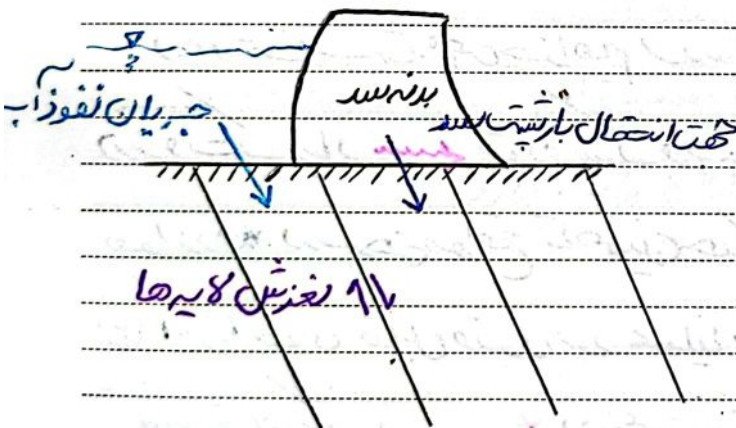 جریان نفوذ آب
بدنه سد
جهت انتقال بار پشت سد
لغزش لایه‌ها